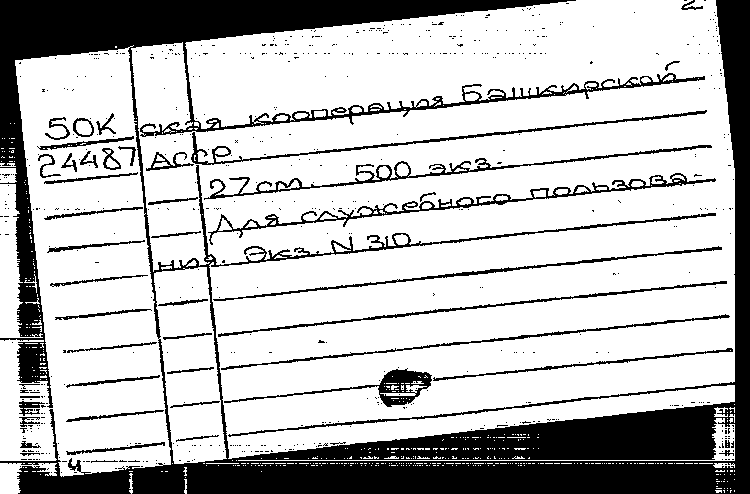 2
50К ская кооперация Башкирской
24487 АССР.
27см. 500 экз.
Для служебного пользова-
ния. Экз. N 310.
ч